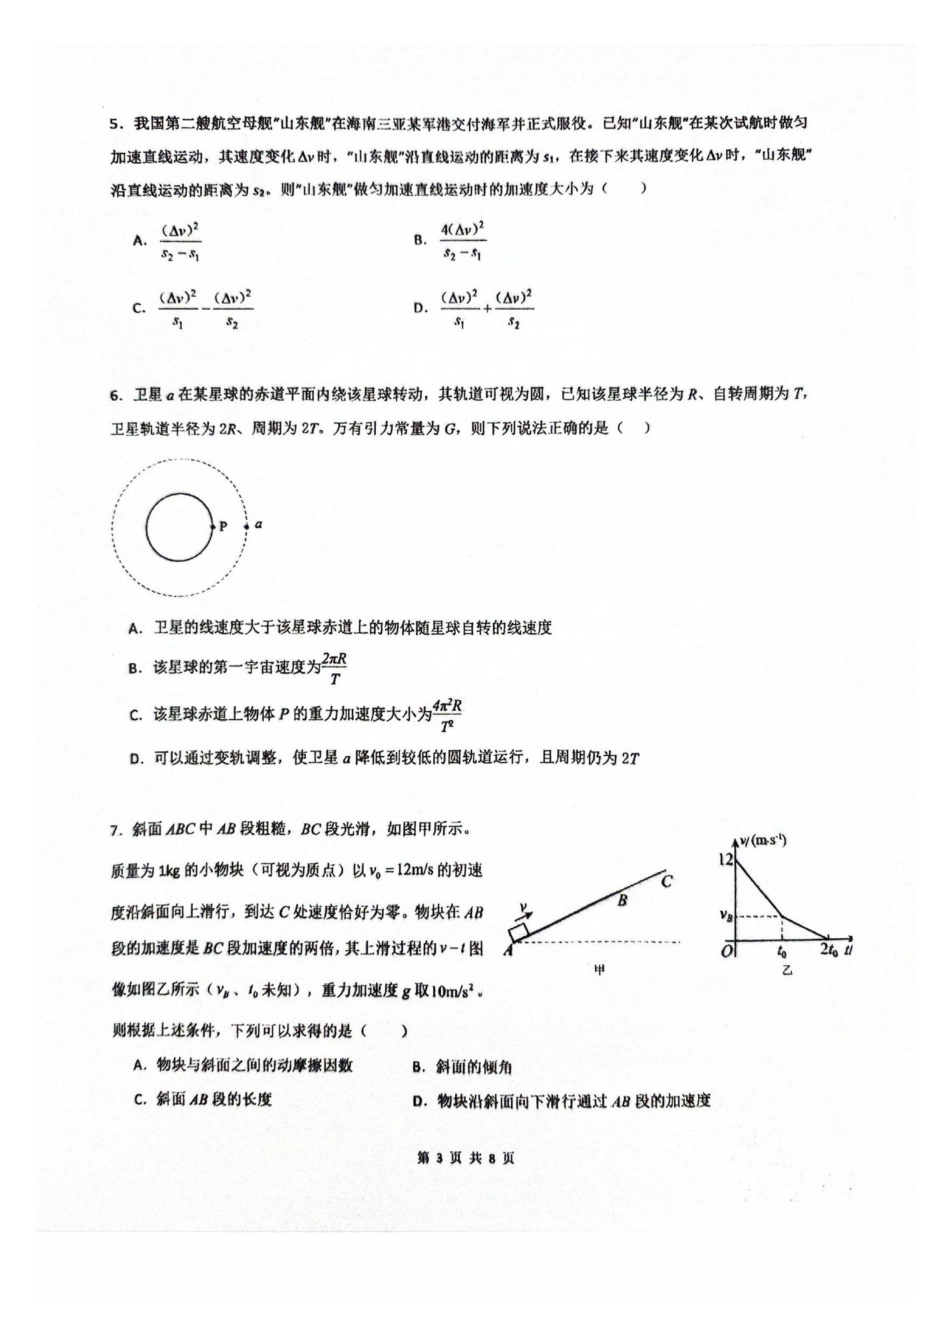 5．我国第二艘航空母舰"山东舰"在海南三亚某军港交付海军并正式服役。已知"山东舰"在某次试航时做匀
加速直线运动，其速度变化Δv时，"山东舰"沿直线运动的距离为s₁，在接下来其速度变化Δv时，"山东舰"
沿直线运动的距离为s₂。则"山东舰"做匀加速直线运动时的加速度大小为（　）
A．(Δv)²/(s₂−s₁)　B．4(Δv)²/(s₂−s₁)
C．(Δv)²/s₁−(Δv)²/s₂　D．(Δv)²/s₁+(Δv)²/s₂
6．卫星a在某星球的赤道平面内绕该星球转动，其轨道可视为圆，已知该星球半径为R、自转周期为T，
卫星轨道半径为2R、周期为2T。万有引力常量为G，则下列说法正确的是（　）
P　a
A．卫星的线速度大于该星球赤道上的物体随星球自转的线速度
B．该星球的第一宇宙速度为2πR/T
C．该星球赤道上物体P的重力加速度大小为4π²R/T²
D．可以通过变轨调整，使卫星a降低到较低的圆轨道运行，且周期仍为2T
7．斜面ABC中AB段粗糙，BC段光滑，如图甲所示。
质量为1kg的小物块（可视为质点）以v₀=12m/s的初速
度沿斜面向上滑行，到达C处速度恰好为零。物块在AB
段的加速度是BC段加速度的两倍，其上滑过程的v－t图
像如图乙所示（v_B、t₀未知），重力加速度g取10m/s²。
则根据上述条件，下列可以求得的是（　）
v　A　B　C
甲
v/(m·s⁻¹)
12
v_B
O　t₀　2t₀　t/
乙
A．物块与斜面之间的动摩擦因数　B．斜面的倾角
C．斜面AB段的长度　D．物块沿斜面向下滑行通过AB段的加速度
第 3 页 共 8 页